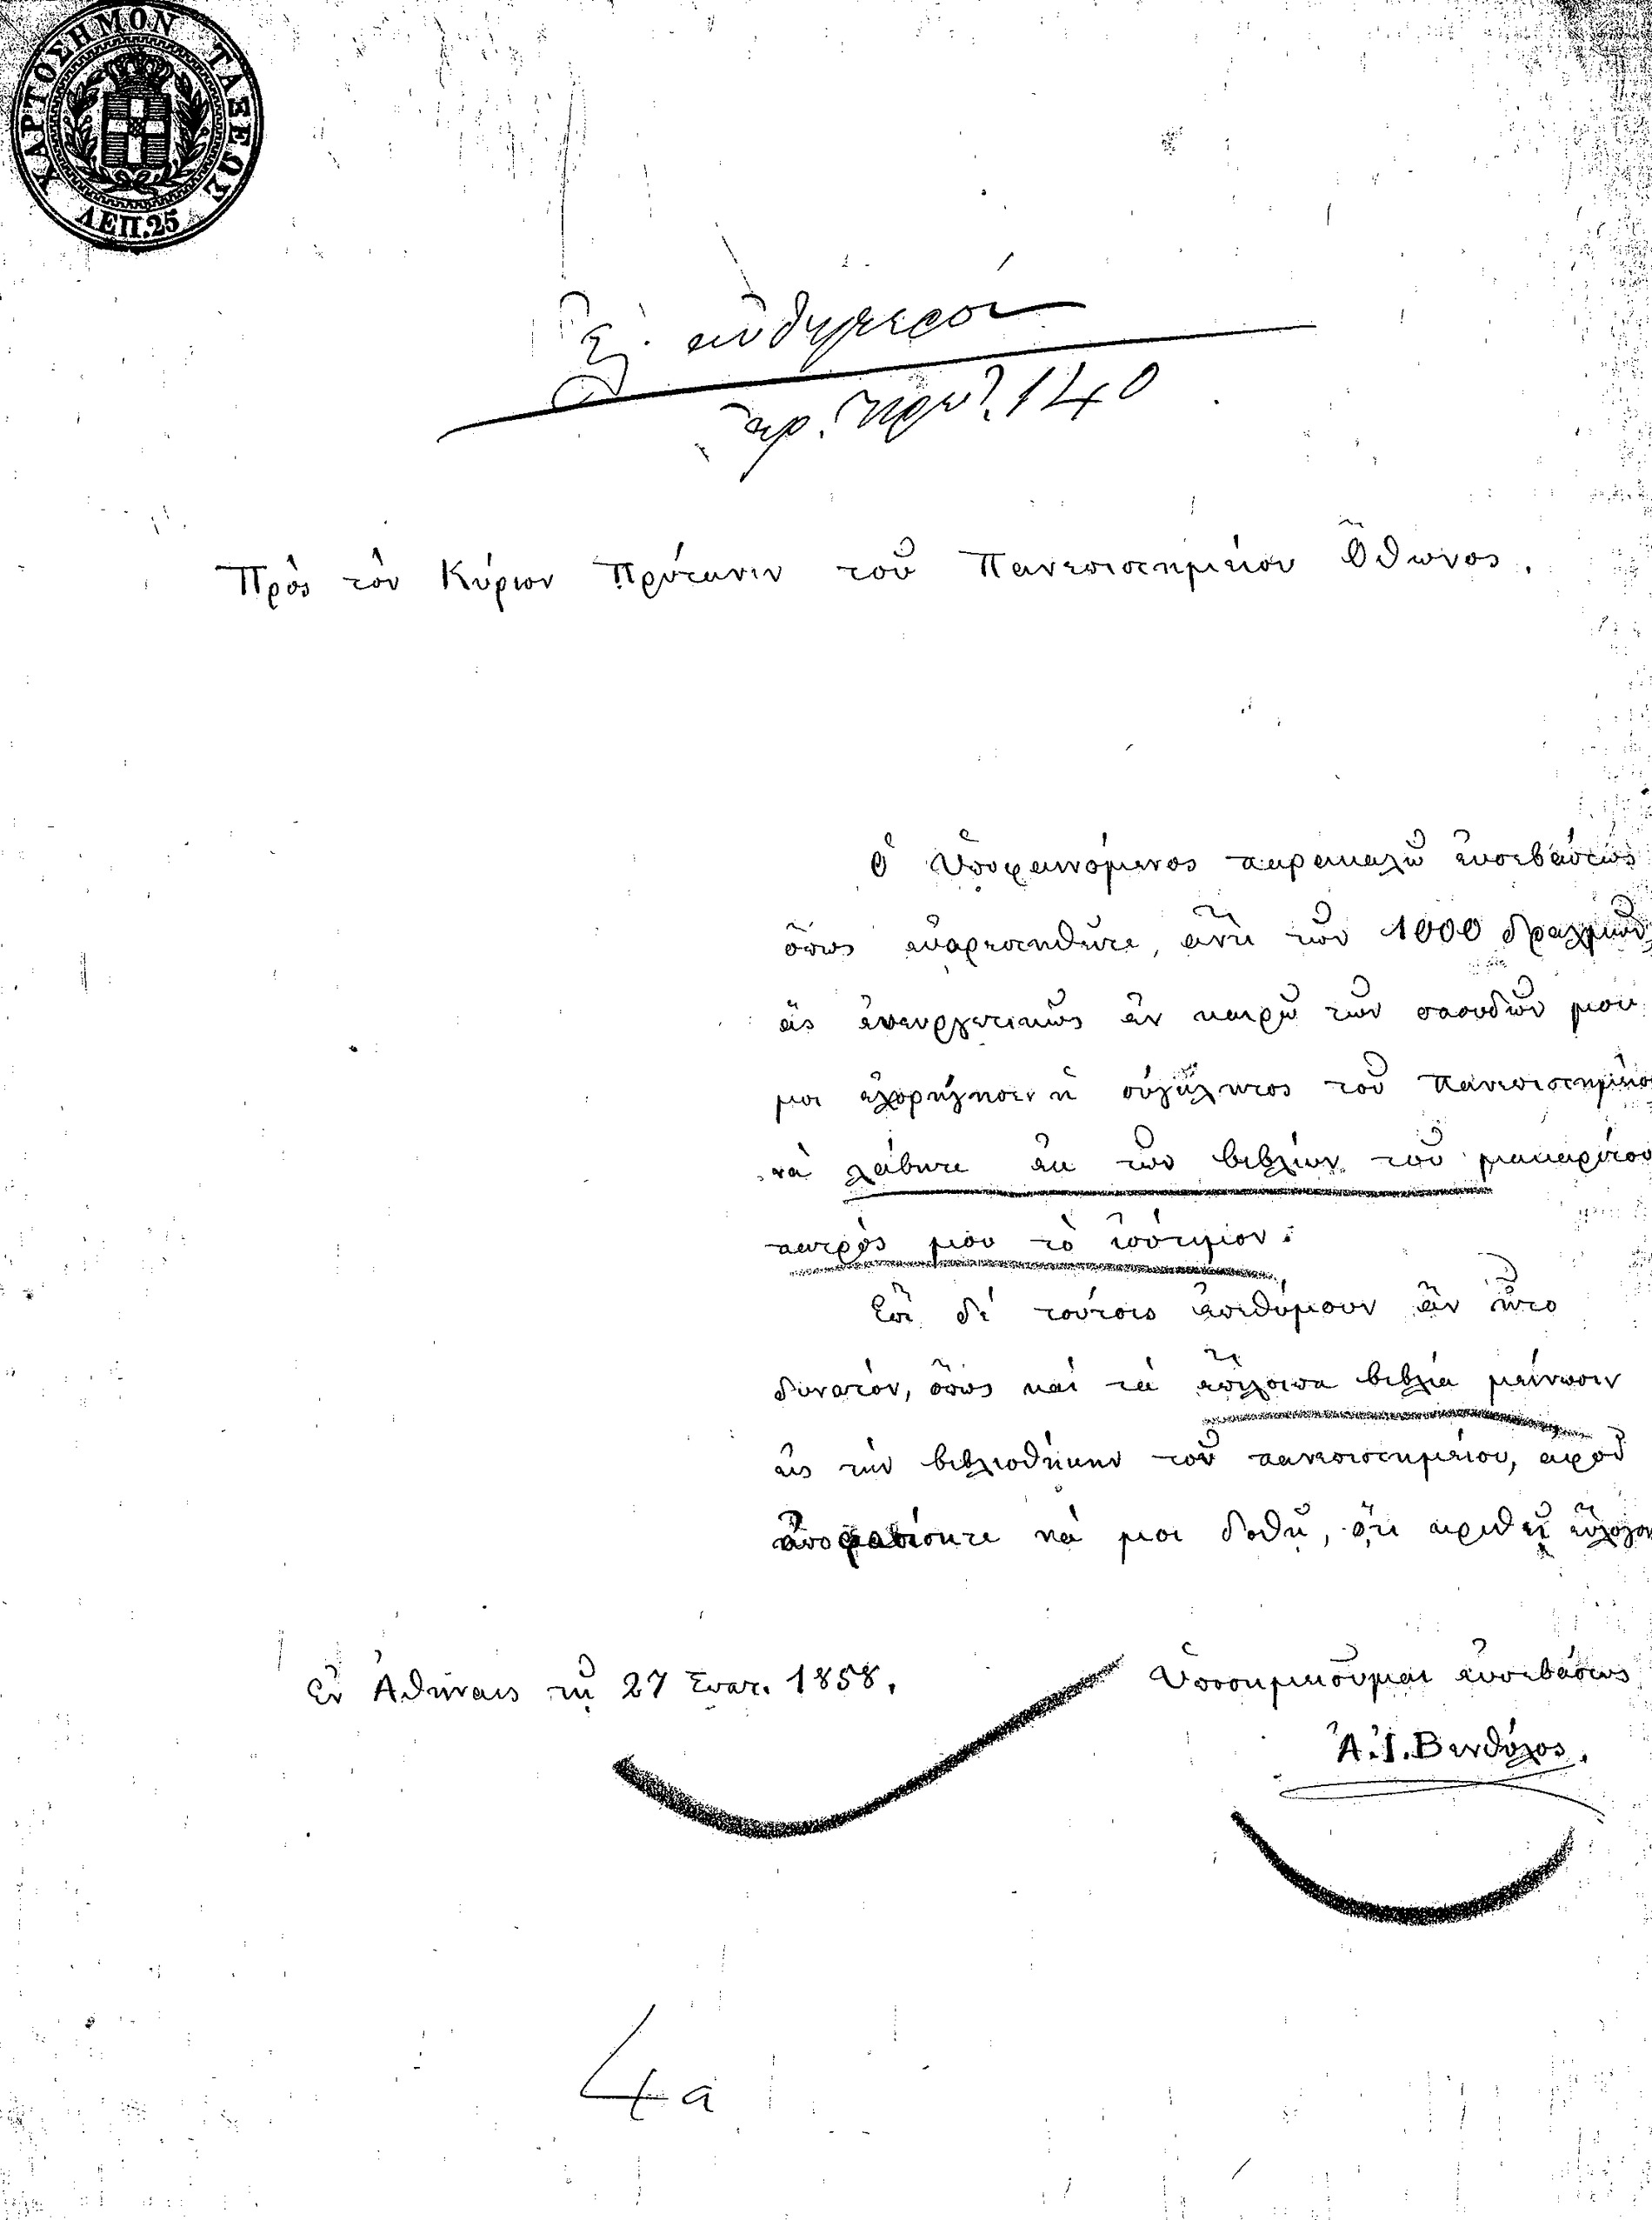 ΧΑΡΤΟΣΗΜΟΝ ΤΑΞΕΩΣ
ΛΕΠ.25
αὐθημερὸν
ἀρ. πρωτ. 140
Πρὸς τὸν Κύριον Πρύτανιν τοῦ Πανεπιστημείου Ὄθωνος.
Ὁ Ὑποφαινόμενος παρακαλῶ εὐσεβάστως
ὅπως εὐαρεστηθῆτε, ἀντὶ τῶν 1000 δραχμῶν
ἃς εὐεργετικῶς ἐν καιρῷ τῶν σπουδῶν μου
μοι ἐχορήγησεν ἡ σύγκλητος τοῦ Πανεπιστημείου
νὰ λάβητε ἐκ τῶν βιβλίων τοῦ μακαρίτου
πατρός μου τὸ ἰσότιμον.
Ἐπὶ δὲ τούτοις ἐπεθύμουν ἂν ἦτο
δυνατόν, ὅπως καὶ τὰ ἐπίλοιπα βιβλία μείνωσιν
εἰς τὴν βιβλιοθήκην τοῦ πανεπιστημείου, ἀφοῦ
ἀποφασίσητε νὰ μοι δοθῇ, ὅτι κριθεῖ εὔλογον
Ἐν Ἀθήναις τῇ 27 1858.
Ὑποσημειοῦμαι εὐσεβάστως
Ἀ.Ι. Βενθύλος.
4a